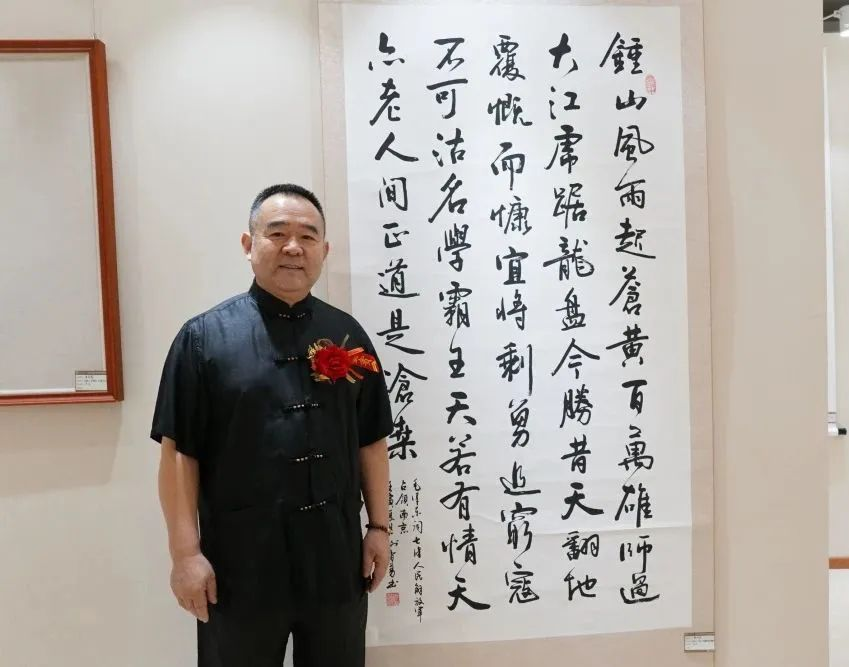 鍾山風雨起蒼黃百萬雄師過
大江虎踞龍盤今勝昔天翻地
覆慨而慷宜將剩勇追窮寇
不可沽名學霸王天若有情天
亦老人間正道是滄桑
毛澤东詞七律人民解放軍
占領南京